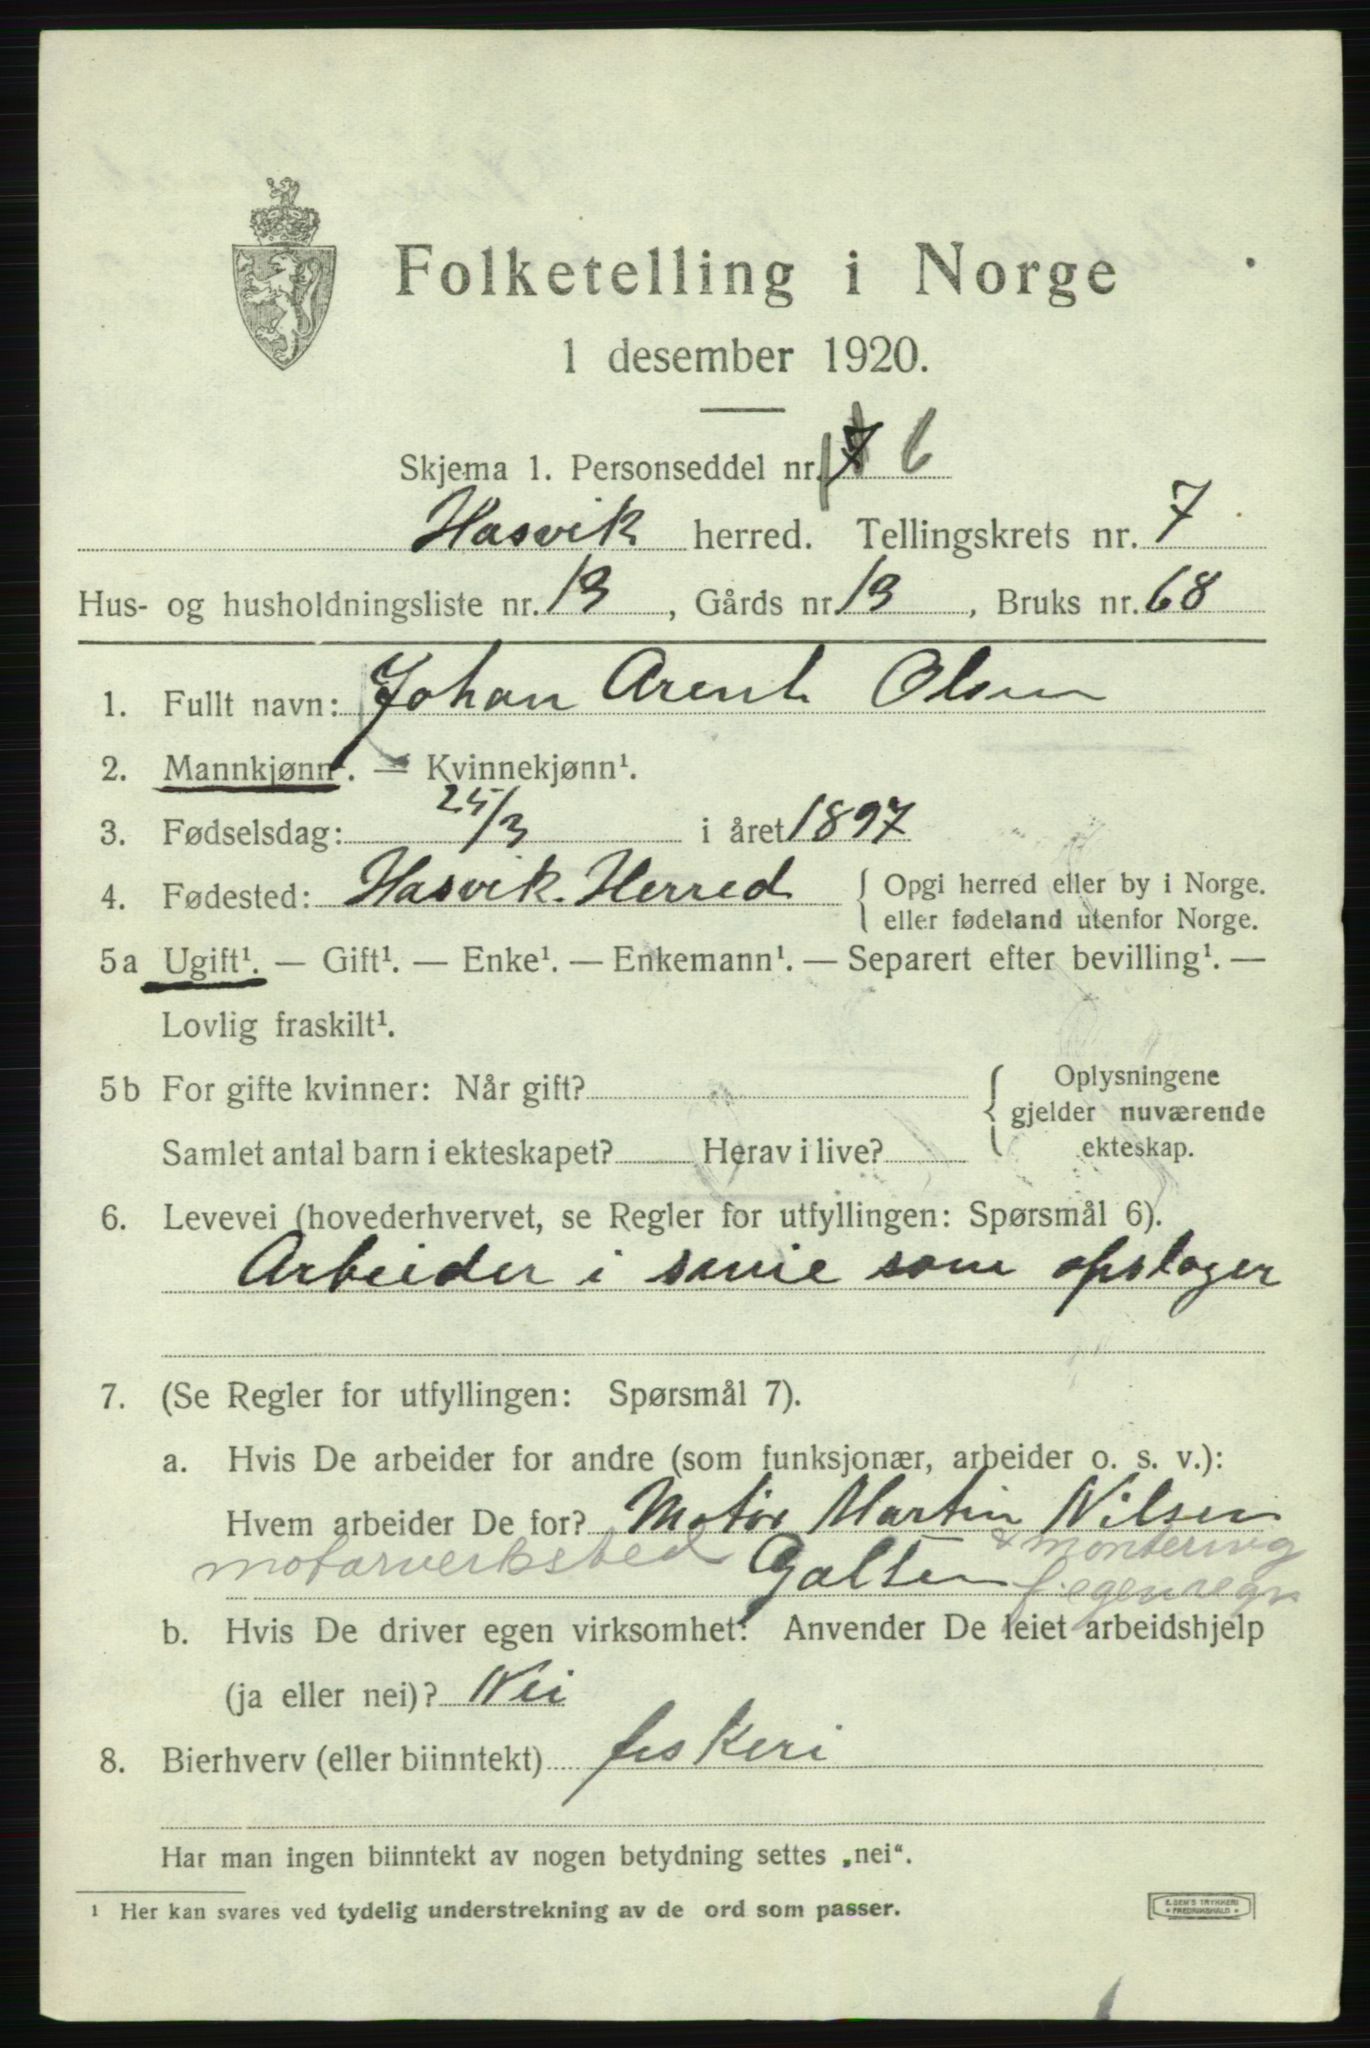 Folketelling i Norge
1 desember 1920.
Skjema 1. Personseddel nr. 6
Hasvik herred. Tellingskrets nr. 7
Hus- og husholdningsliste nr. 13, Gårds nr. 13, Bruks nr. 68
1. Fullt navn: Johan Arent Olsen
2. Mannkjønn¹. — Kvinnekjønn¹.
3. Fødselsdag: 25/3 i året 1897
4. Fødested: Hasvik. Herred { Opgi herred eller by i Norge.
eller fødeland utenfor Norge.
5a Ugift¹. — Gift¹. — Enke¹. — Enkemann¹. — Separert efter bevilling¹. —
Lovlig fraskilt¹.
5b For gifte kvinner: Når gift? { Oplysningene
gjelder nuværende
Samlet antal barn i ekteskapet? Herav i live? ekteskap.
6. Levevei (hovederhvervet, se Regler for utfyllingen: Spørsmål 6).
Arbeider i smie som opslager
7. (Se Regler for utfyllingen: Spørsmål 7).
a. Hvis De arbeider for andre (som funksjonær, arbeider o. s. v.):
Hvem arbeider De for? Motør Martin Nilsen
motorverksted Galten & montering
f. egen regn
b. Hvis De driver egen virksomhet: Anvender De leiet arbeidshjelp
(ja eller nei)? Nei
8. Bierhverv (eller biinntekt) fiskeri
Har man ingen biinntekt av nogen betydning settes „nei“.
1 Her kan svares ved tydelig understrekning av de ord som passer.
E. SEM'S TRYKKERI
FREDRIKSHALD